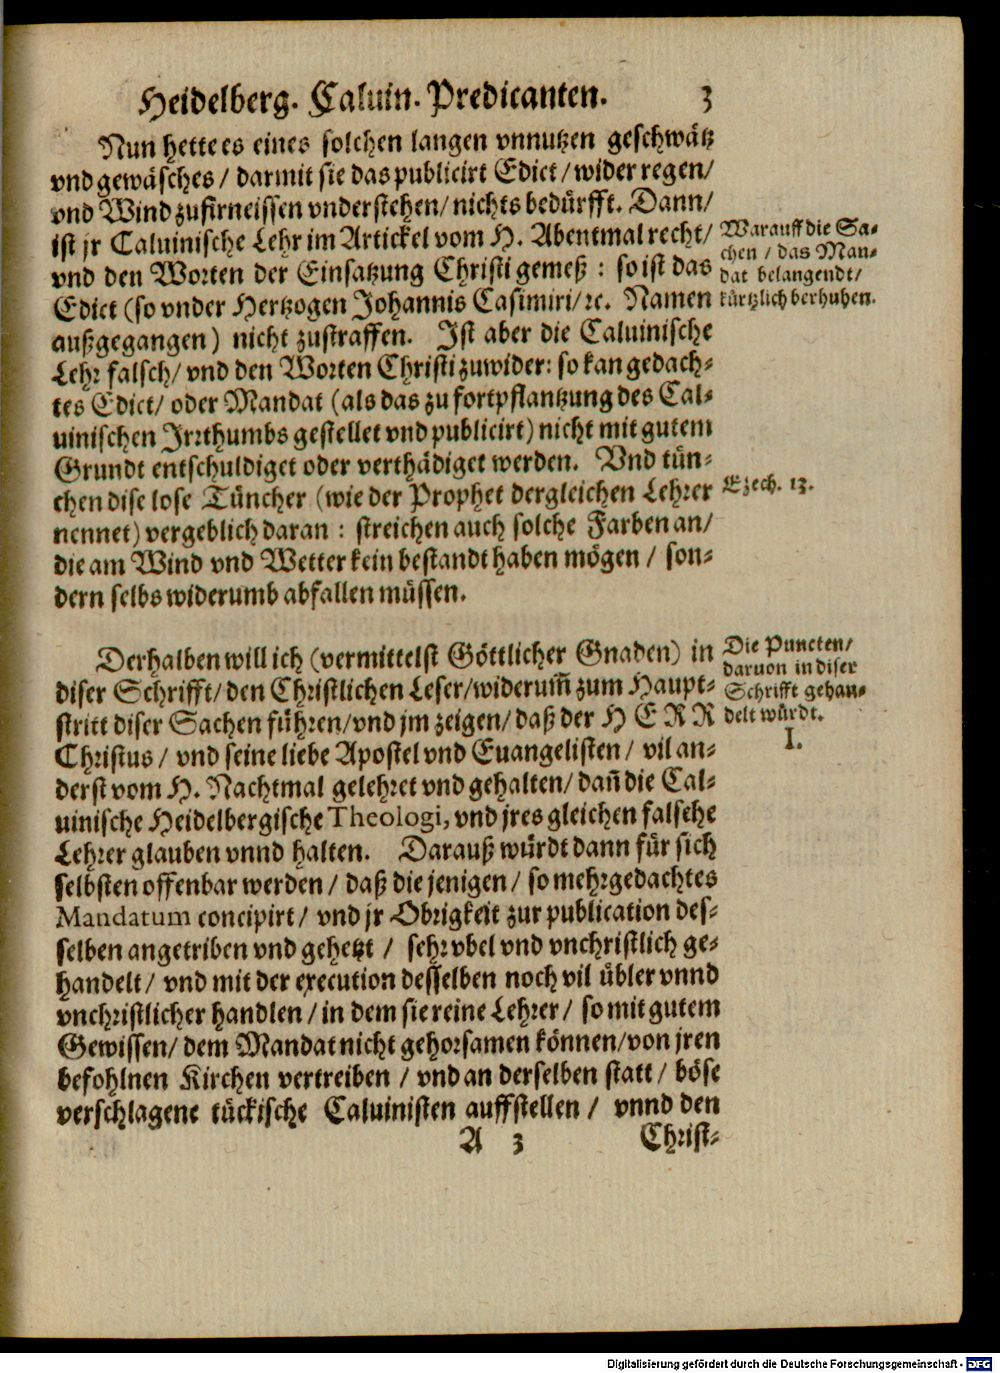 Heidelberg. Caluin. Predicanten. 3
Nun hette es eines solchen langen vnnutzen geschwätz
vnd gewäsches / darmit sie das publicirt Edict / wider regen /
vnd Wind zufirneissen vnderstehen / nichts bedürfft. Dann /
ist jr Caluinische Lehr im Artickel vom H. Abentmal recht /
vnd den Worten der Einsatzung Christi gemeß : so ist das
Edict (so vnder Hertzogen Johannis Casimiri / ꝛc. Namen
außgegangen) nicht zustraffen. Ist aber die Caluinische
Lehr falsch / vnd den Worten Christi zuwider: so kan gedach-
tes Edict / oder Mandat (als das zu fortpflantzung des Cal-
uinischen Irrthumbs gestellet vnd publicirt) nicht mit gutem
Grundt entschuldiget oder verthädiget werden. Vnd tün-
chen dise lose Tüncher (wie der Prophet dergleichen Lehrer
nennet) vergeblich daran : streichen auch solche Farben an /
die am Wind vnd Wetter kein bestandt haben mögen / son-
dern selbs widerumb abfallen müssen.
Warauff die Sa-
chen / das Man-
dat belangendt /
kürtzlich berhuhen.
Ezech. 13.
Derhalben will ich (vermittelst Göttlicher Gnaden) in
diser Schrifft / den Christlichen Leser / widerum̃ zum Haupt-
stritt diser Sachen führen / vnd jm zeigen / daß der HERR
Christus / vnd seine liebe Apostel vnd Euangelisten / vil an-
derst vom H. Nachtmal gelehret vnd gehalten / dañ die Cal-
uinische Heidelbergische Theologi, vnd jres gleichen falsche
Lehrer glauben vnnd halten. Darauß würdt dann für sich
selbsten offenbar werden / daß die jenigen / so mehrgedachtes
Mandatum concipirt / vnd jr Obrigkeit zur publication des-
selben angetriben vnd gehetzt / sehr vbel vnd vnchristlich ge-
handelt / vnd mit der execution desselben noch vil übler vnnd
vnchristlicher handlen / in dem sie reine Lehrer / so mit gutem
Gewissen / dem Mandat nicht gehorsamen können / von jren
befohlnen Kirchen vertreiben / vnd an derselben statt / böse
verschlagene tückische Caluinisten auffstellen / vnnd den
Die Puncten /
daruon in diser
Schrifft gehan-
delt würdt.
I.
A 3 Christ-
Digitalisierung gefördert durch die Deutsche Forschungsgemeinschaft - DFG